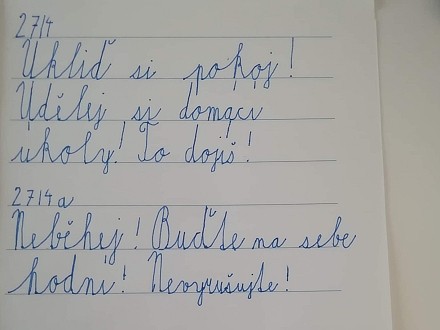 27/4
Ukliď si pokoj!
Udělej si domácí
úkoly! To dojíš!
27/4 a
Neběhej! Buďte na sebe
hodní! Nevyrušujte!